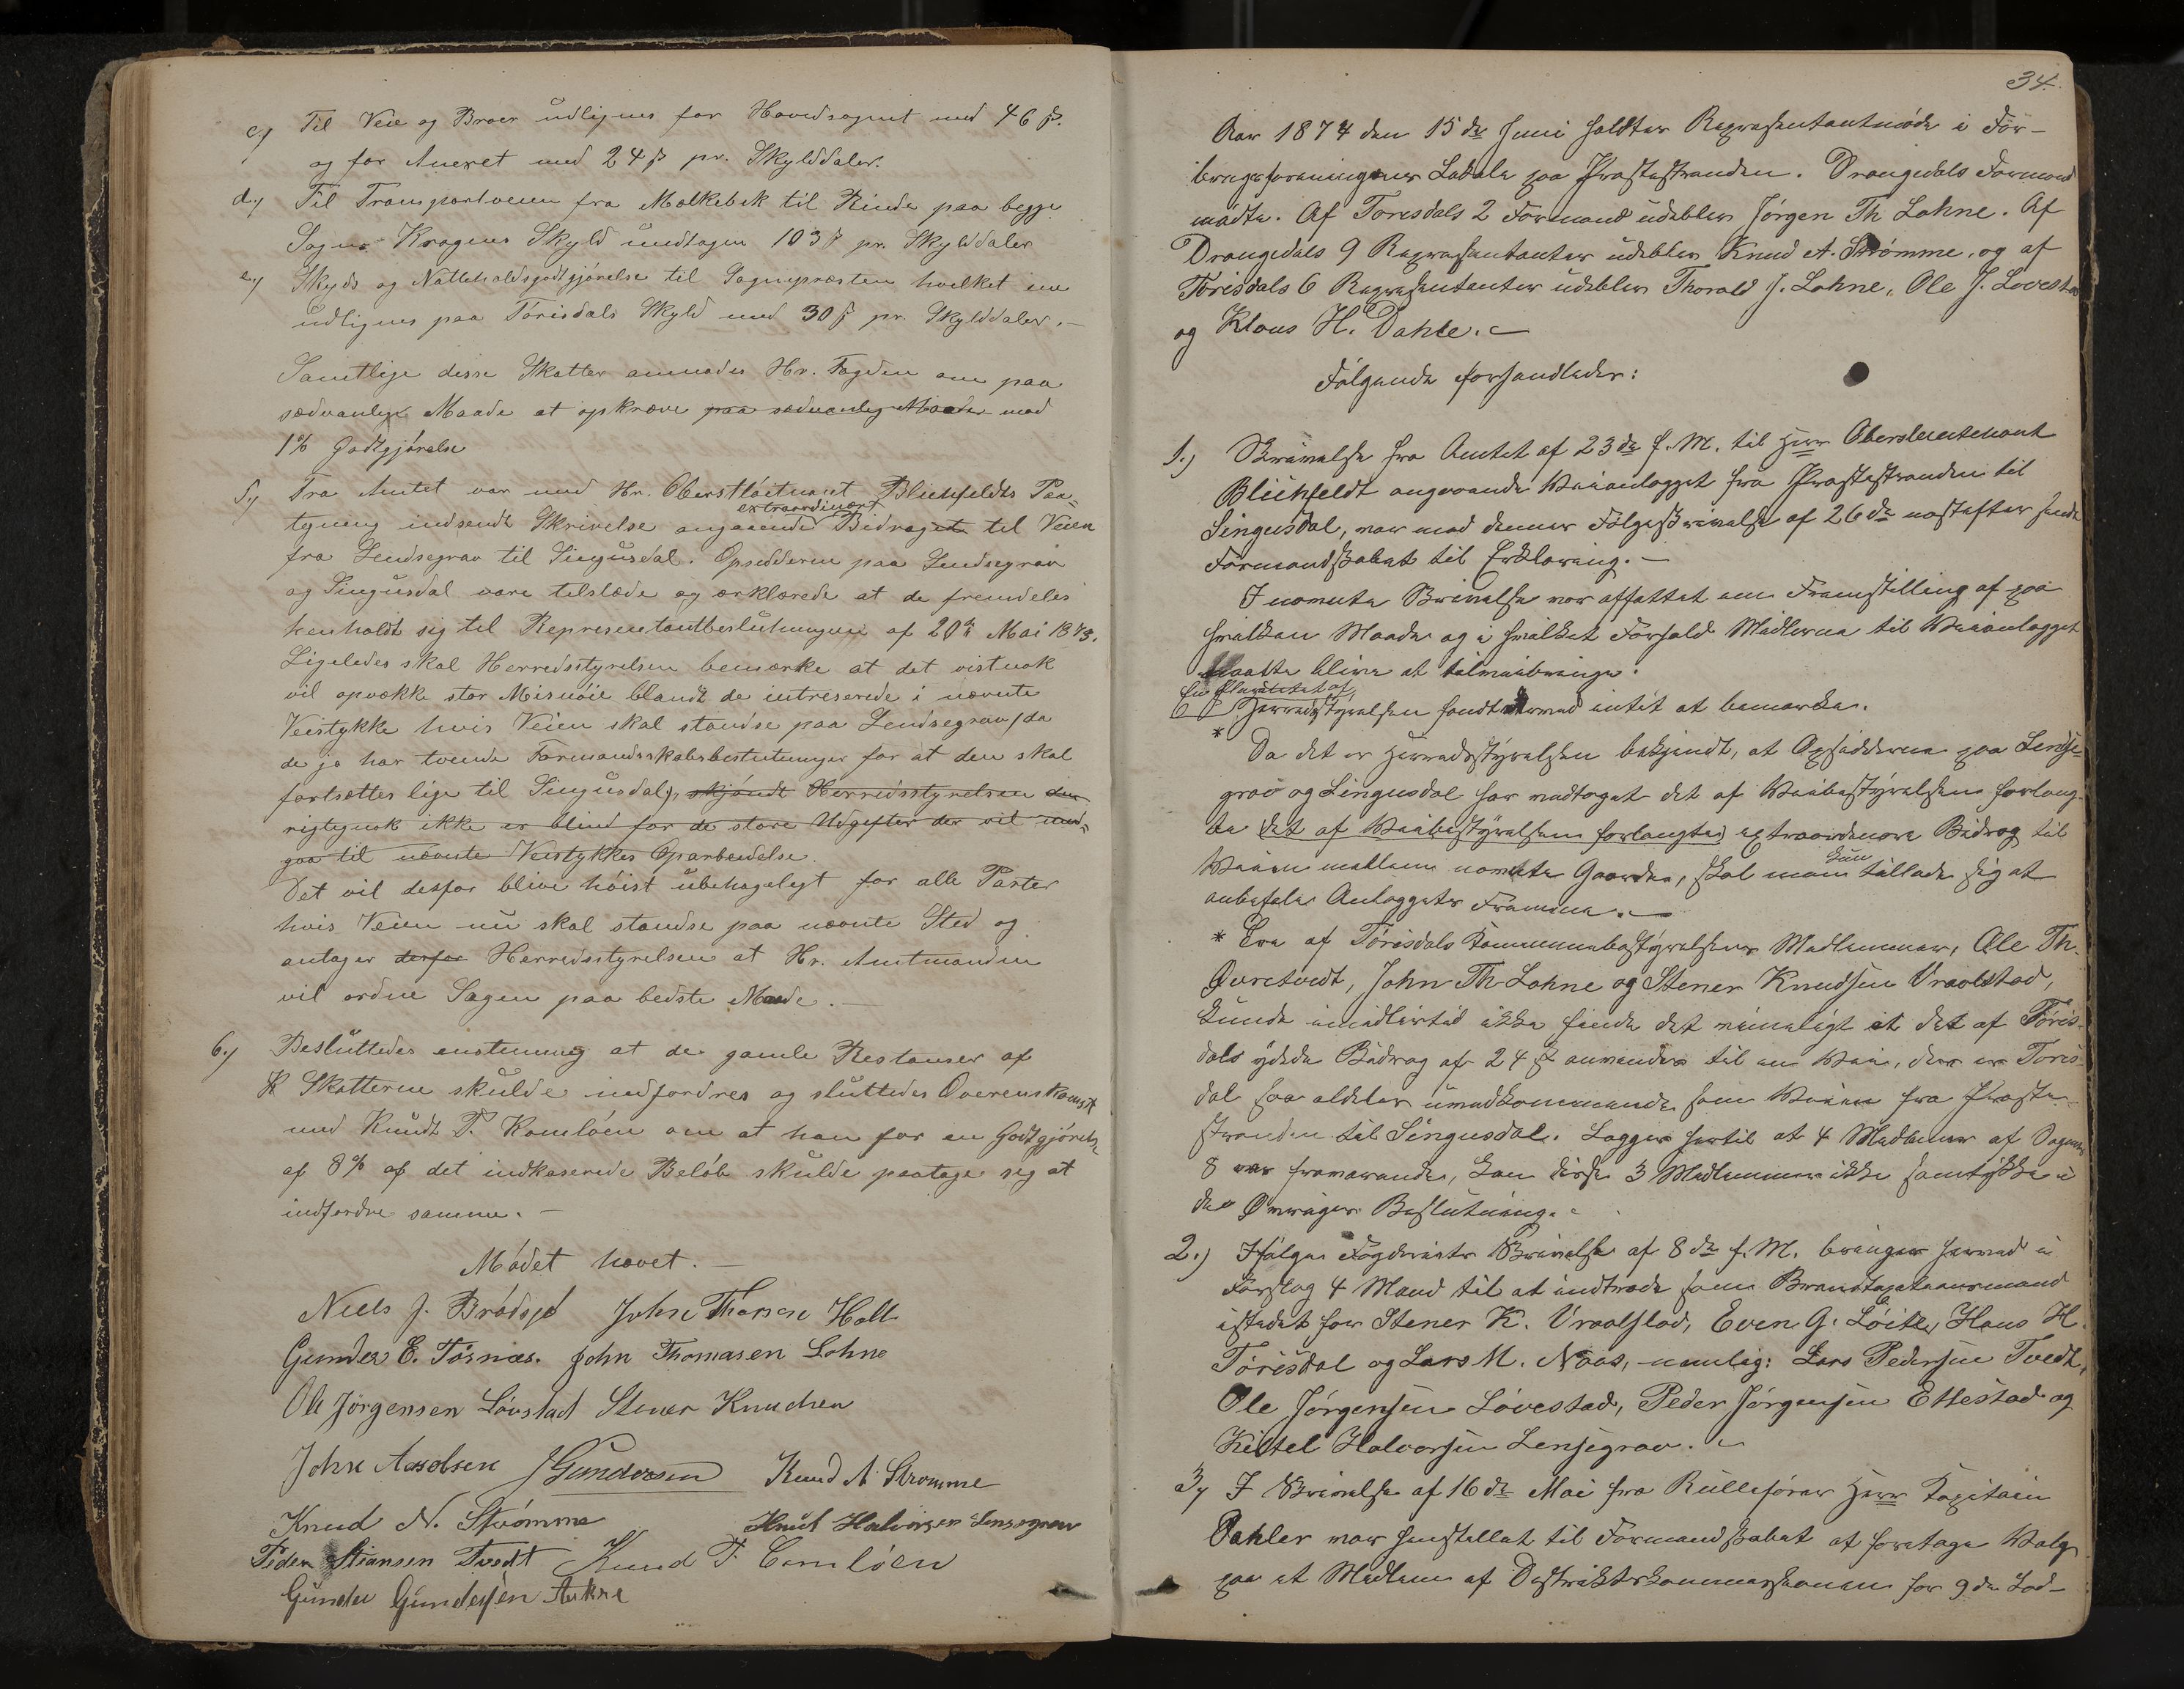 c.) Til Veie og Broer udlignes for Hovedsognet med 46 ß.
og for Anexet med 24 ß pr. Skylddaler.
d.) Til Transportveien fra Mælkebæk til Rinde paa begge
Sogne Kragerø Skyld undtagen 103 ß pr. Skylddaler
e.) Skyds og Natteholdsgodtgjørelse til Sognepræsten hvilket
udlignes paa Tørisdals Skyld med 30 ß pr. Skylddaler.—
Samtlige disse Skatter anmodes Hr. Fogden om paa
sædvanlig Maade at opkræve paa sædvanlig Maade mod
1% Godtgjørelse
5.) Fra Amtet var med Hr. Oberstløitnant Blichfeldts Paa=
extraordinært
tegning indsendt Skrivelse angaaende Bidraget til Veien
fra Lendsegrav til Singusdal. Opsidderne paa Lendsegrav
og Singusdal vare tilstæde og erklærede at de fremdeles
henholdt sig til Representantbeslutningen af 20de Mai 1873.
Ligeledes skal Herredsstyrelsen bemærke at det vistnok
vil opvække stor Misnøie blandt de intreserede i nævnte
Veistykke hvis Veien skal standse paa Lendsegrav (da
de jo har tvende Formandsskabsbeslutninger for at den skal
fortsættes lige til Singusdal), skjøndt Herredsstyrelsen den
rigtignok ikke er blind for de store Udgifter der vil med=
gaa til nævnte Veistykkes Oparbeidelse.
Det vil desfor blive høist ubehageligt for alle Parter
hvis Veien nu skal standse paa nævnte Sted og
antager derfor Herredsstyrelsen at Hr. Amtmanden
vil ordne Sagen paa bedste Maade.—
6.) Besluttedes enstemmig at de gamle Restanser af
Skatterne skulde indfordres og sluttedes Overenskomst
med Knudt T. Komløen om at han for en Godtgjørelse
af 8% af det indkaserede Beløb skulde paatage sig at
indfordre samme.—
Mødet hævet.—
Niels J. Brødsjø John Thorsen Holte
Gunder E. Tørnæs. John Thomasen Lohne
Ole Jørgensen Løvstad Stener Knudsen
John Aasolsen J Gundersen Knud A. Strømme
Knud N. Strømme Knut Halvorsen Lensegrav
Peder Stiansen Tvedt Knud T. Comløen
Gunder Gundersen Aakre
34.
Aar 1874 den 15de Juni holdtes Repræsentantmøde i For-
brugsforeningens Locale paa Præstestranden. Drangedals Formænd
mødte. Af Torisdals 2 Formænd udeblev Jørgen Th Lohne. Af
Drangedals 9 Repræsentanter udeblev Knud A. Strømme, og af
Torisdals 6 Repræsentanter udeblev Thorald J. Lohne, Ole J. Lovestad
og Klaus H. Dahle.—
Følgende forhandledes:
1.) Skrivelse fra Amtet af 23de f. M. til Herr Oberstleutenant
Blichfeldt angaaende Veianlægget fra Præstestranden til
Singusdal, var med dennes Følgeskrivelse af 26de næstefter sendt
Formandskabet til Erklæring.—
I nævnte Skrivelse var affattet en Fremstilling af paa
hvilken Maade og i hvilket Forhold Midlerne til Veianlægget
maatte blive at tilveiebringe.
En Pluralitet af
Herredsstyrelsen fandt hermed intet at bemærke.
* Da det er Herredsstyrelsen bekjendt, at Opsidderne paa Lendse=
grav og Singusdal har vedtaget det af Veibestyrelsen forlang-
te det af Veibestyrelsen forlangte extraordinære Bidrag til
kun
Veien mellem nævnte Gaarde, skal man tillade sig at
anbefale Anlæggets Fremme.—
* Tre af Tørisdals Kommunebestyrelses Medlemmer, Ole Th.
Øvretvedt, John Th Lohne og Stener Knudsen Vraalstad,
kunde imidlertid ikke finde det rimeligt at det af Tøris-
dals ydede Bidrag af 24 ß anvendes til en Vei, der er Toris-
dal saa aldeles uvedkommende som Veien fra Præste-
stranden til Singusdal. Lægges hertil at 4 Medlemmer af Sognets
8 var fraværende, kan disse 3 Medlemmer ikke samtykke i
de Øvriges Beslutning.
2.) Ifølge Fogderiets Skrivelse af 8de f. M. bringes herved i
Forslag 4 Mænd til at indtræde som Brandtaxtationsmænd
istedet for Stener K. Vraalstad, Even G. Løite, Hans H.
Tørisdal og Lars M. Naas, nemlig: Lars Pedersen Tvedt,
Ole Jørgensen Lövestad, Peder Jørgensen Ettestad og
Kittel Halvorsen Lensegrav.
3.) I Skrivelse af 16de Mai fra Rulleforer Herr Kapitain
Dahler var henstillet til Formandskabet at foretage Valg
paa et Medlem af Distriktskommissionen for 9de Lod-